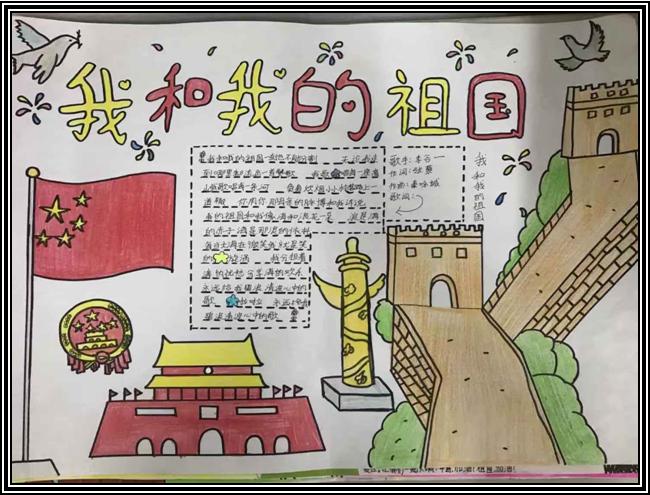 我和我的祖国
我和我的祖国一刻也不能分割 无论我走
到哪里都流出一首赞歌 我歌唱每一座高
山我歌唱每一条河 袅袅炊烟小小村落路上一
道辙 你用你那母亲的脉搏和我诉说
我的祖国和我像海和浪花一朵 浪是海
的赤子海是那浪的依托
每当大海在微笑我就是笑
的旋涡 我分担着
海的忧愁分享海的欢乐
永远给我碧浪清波心中的
歌 啦啦 永远给我
碧浪清波心中的歌
歌手:李谷一
作词:张藜
作曲:秦咏诚
歌词:
我和我的祖国
加油!祖国,加油!